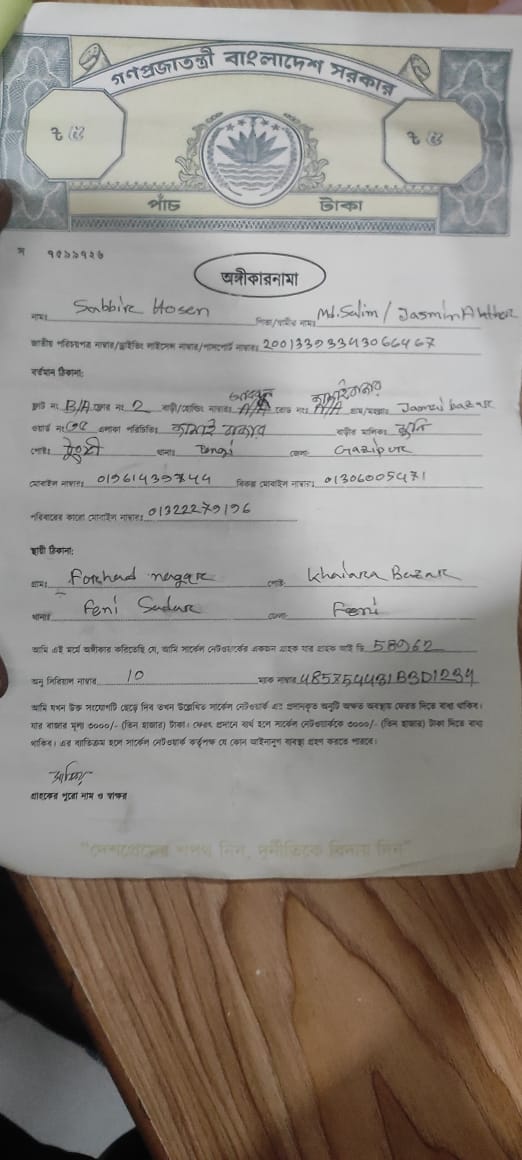 গণপ্রজাতন্ত্রী বাংলাদেশ সরকার
৳ ৫ ৳ ৫
পাঁচ টাকা
অঙ্গীকারনামা
নামঃ Sabbir Hosen পিতা/স্বামীর নামঃ Md. Salim / Jasmin Akhter
জাতীয় পরিচয়পত্র নাম্বার/ড্রাইভিং লাইসেন্স নাম্বার/পাসপোর্ট নাম্বারঃ
বর্তমান ঠিকানা:
ফ্লাট নং B/A ফ্লোর নং 2 বাড়ী/হোল্ডিং নাম্বারঃ রোড নংঃ গ্রাম/মহল্লাঃ Jamai bazar
ওয়ার্ড নং এলাকা পরিচিতিঃ জামাই বাজার বাড়ীর মালিকঃ
পোষ্টঃ টুংগী থানাঃ Tongi জেলাঃ Gazipur
মোবাইল নাম্বারঃ 01961439744 বিকল্প মোবাইল নাম্বারঃ 01306005471
পরিবারের কারো মোবাইল নাম্বারঃ 01322279196
স্থায়ী ঠিকানা:
গ্রামঃ Forhad nagar পোষ্টঃ Khaiara Bazar
থানাঃ Feni Sadar জেলাঃ Feni
আমি এই মর্মে অঙ্গীকার করিতেছি যে, আমি সার্কেল নেটওয়ার্কের একজন গ্রাহক যার গ্রাহক আই ডি 58962
অনু সিরিয়াল নাম্বার 10 ম্যাক নাম্বার 485754431B3D1234
আমি যখন উক্ত সংযোগটি ছেড়ে দিব তখন উল্লেখিত সার্কেল নেটওয়ার্ক এর প্রদানকৃত অনুটি অক্ষত অবস্থায় ফেরত দিতে বাধ্য থাকিব।
যার বাজার মূল্য ৩০০০/- (তিন হাজার) টাকা। ফেরৎ প্রদানে ব্যর্থ হলে সার্কেল নেটওয়ার্ককে ৩০০০/- (তিন হাজার) টাকা দিতে বাধ্য
থাকিব। এর ব্যতিক্রম হলে সার্কেল নেটওয়ার্ক কর্তৃপক্ষ যে কোন আইনানুগ ব্যবস্থা গ্রহণ করতে পারবে।
গ্রাহকের পুরো নাম ও স্বাক্ষর
"দেশপ্রেমের শপথ নিন, দুর্নীতিকে বিদায় দিন"